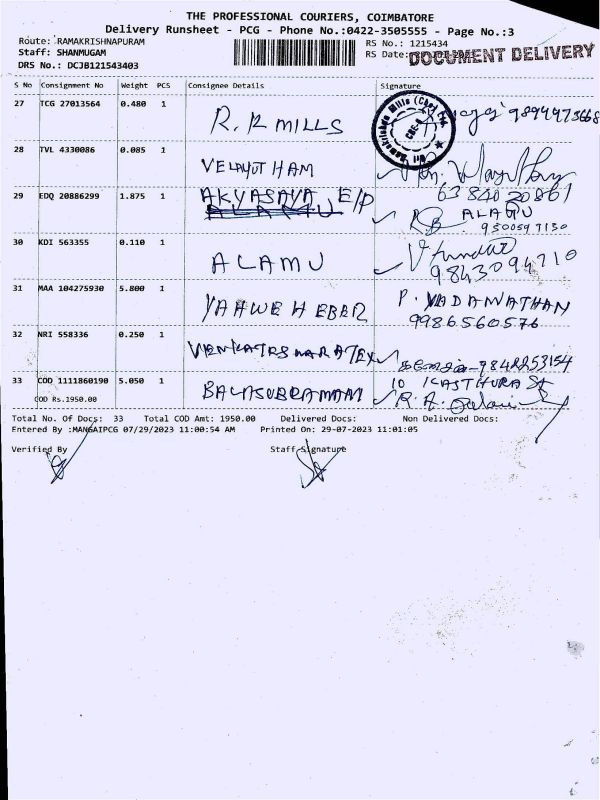 THE PROFESSIONAL COURIERS, COIMBATORE
Delivery Runsheet - PCG - Phone No.:0422-3505555 - Page No.:3
Route: RAMAKRISHNAPURAM
Staff: SHANMUGAM
DRS No.: DCJB121543403
RS No.: 1215434
RS Date:
DOCUMENT DELIVERY
S No Consignment No Weight PCS Consignee Details Signature
27 TCG 27013564 0.480 1 R.K MILLS 9894973668
28 TVL 4330086 0.085 1 VELAYUTHAM
63840 20861
29 EDQ 20886299 1.875 1 AKYASAYA E/P ALAGU
9500597150
30 KDI 563355 0.110 1 ALAMU
9843094710
31 MAA 104275930 5.800 1 YAHWEH EBER P. VADANATHAN
9986560576
32 NRI 558336 0.250 1 VENKATESWARA TEX 9842253154
33 COD 1111860190 5.050 1 BALASUBRAMANI 10 KASTHURA St
COD Rs.1950.00 R.A.
Total No. Of Docs: 33 Total COD Amt: 1950.00 Delivered Docs: Non Delivered Docs:
Entered By :MANGAIPCG 07/29/2023 11:00:54 AM Printed On: 29-07-2023 11:01:05
Verified By Staff Signature